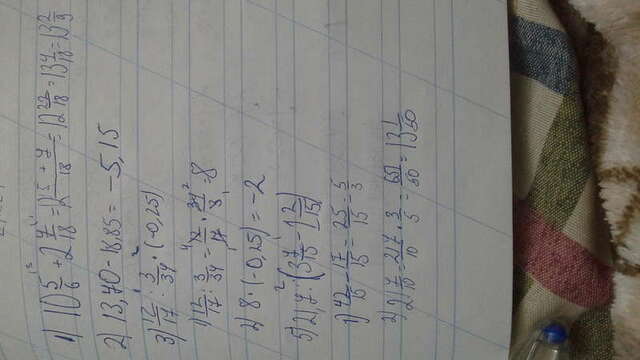 1) 10 5/6 + 2 7/18 = 12 (5+7)/18 = 12 22/18 = 13 4/18 = 13 2/9
2) 13,40 - 18,85 = -5,15
3) 12/17 : 3/34 · (-0,25)
1) 12/17 : 3/34 = 12/17 · 34/3 = 8
2) 8 · (-0,25) = -2
5) 2 7 : (3 7/15 - 1 2/15)
1) 42/15 - 17/15 = 25/15 = 5/3
2) 2 7/10 = 27/10 · 3/5 = /50 = 13 1/50